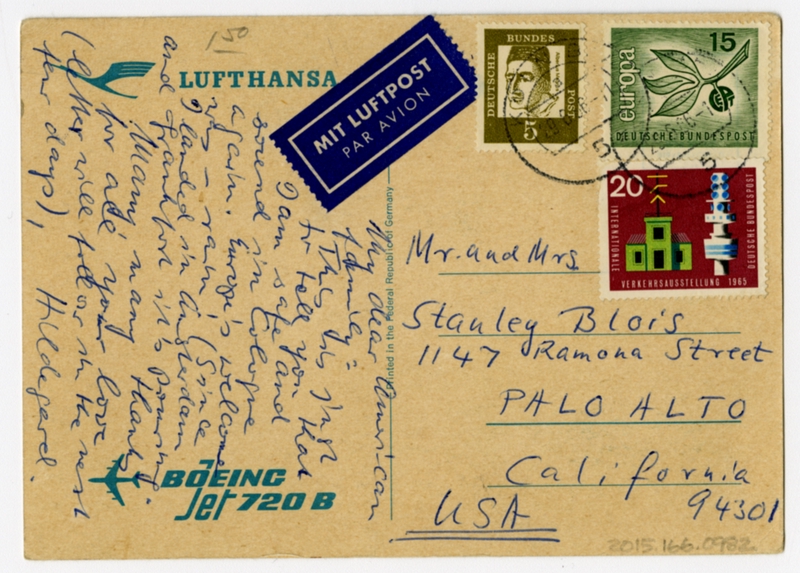 1.50
LUFTHANSA
MIT LUFTPOST
PAR AVION
DEUTSCHE
BUNDES
POST
5
europa
15
DEUTSCHE BUNDESPOST
20
INTERNATIONALE
VERKEHRSAUSSTELLUNG 1965
DEUTSCHE BUNDESPOST
My dear American
family =
This is just
to tell you that
I am safe and
sound in Cologne
again. Europe's welcome
was - rain. (Since
I landed in Amsterdam
and Frankfort it's pouring.
Many, many thanks
for all your love
(letter will follow in the next
few days), Hildegard.
Printed in the Federal Republic of Germany
BOEING
Jet 720 B
Mr. and Mrs
Stanley Blois
1147 Ramona Street
PALO ALTO
California
94301
USA
2015.166.0982